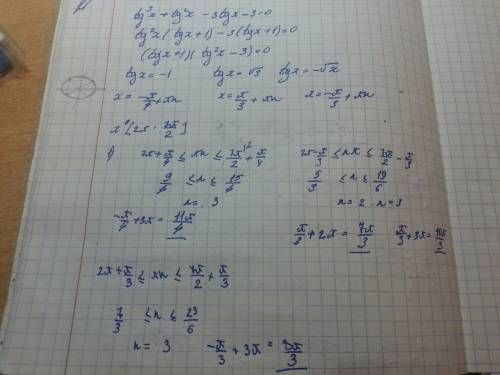 tg³x + tg²x - 3tgx - 3 = 0
tg²x (tgx + 1) - 3(tgx + 1) = 0
(tgx + 1)(tg²x - 3) = 0
tgx = -1 tgx = √3 tgx = -√x
x = -π/4 + πn x = π/3 + πn x = -π/3 + πn
x ∈ [2π · 7π/2]
1) 2π + π/4 ≤ πn ≤ 7π/2 + π/4 2π - π/3 ≤ πn ≤ 7π/2 - π/3
9/4 ≤ n ≤ 15/4 5/3 ≤ n ≤ 19/6
n = 3 n = 2 n = 3
-π/4 + 3π = 11π/4 π/3 + 2π = 7π/3 π/3 + 3π = 10π/3
2π + π/3 ≤ πn ≤ 7π/2 + π/3
7/3 ≤ n ≤ 23/6
n = 3 -π/3 + 3π = 8π/3